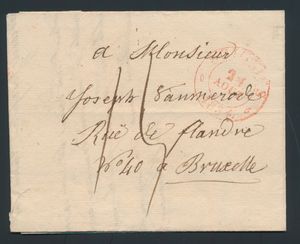 a Monsieur
Joseph Vanmerode
Rue de flandre
N° 40 a Bruxelle
24
AOU